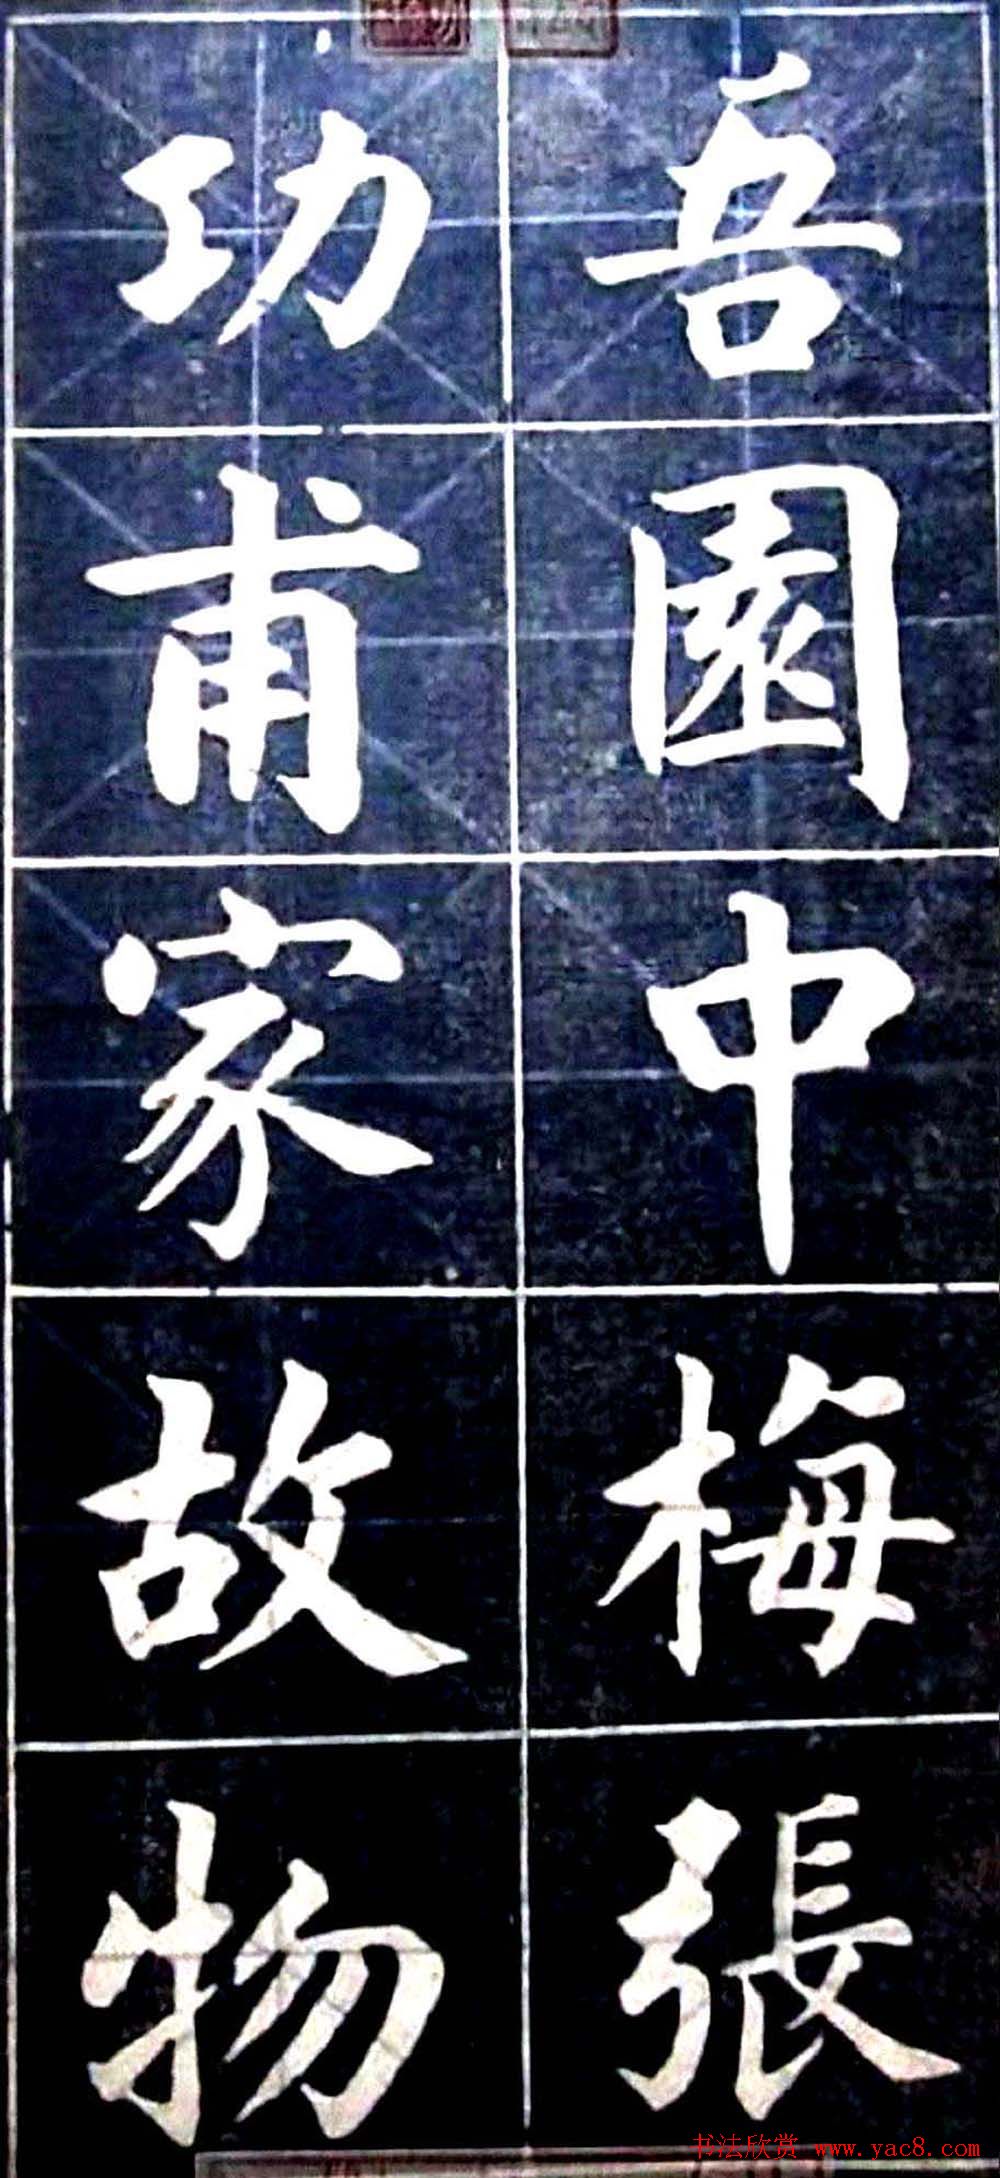 吾園中梅張
功甫家故物
书法欣赏 www.yac8.com